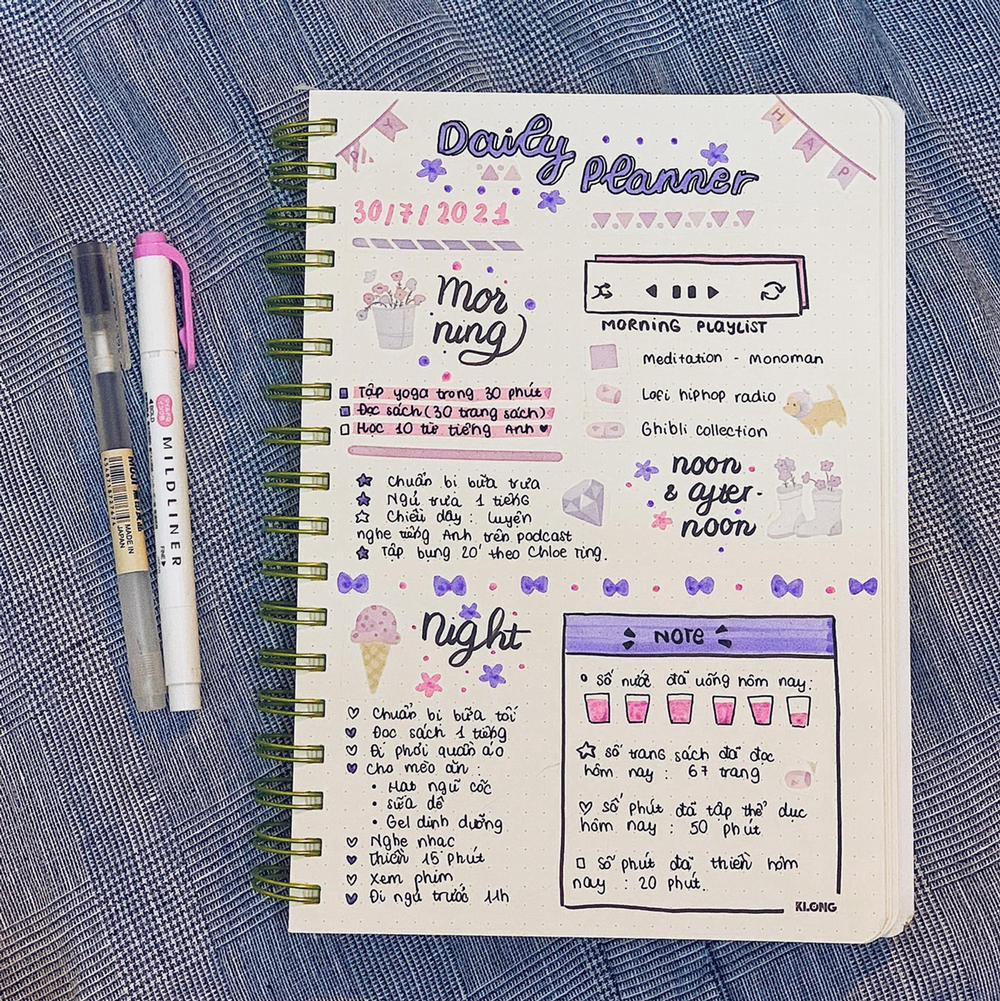 Daily
Planner
HAP
P Y
30/7/2021
Mor
ning
MORNING PLAYLIST
Meditation - Monoman
Lofi hiphop radio
Ghibli collection
Tập yoga trong 30 phút
Đọc sách (30 trang sách)
Học 10 từ tiếng Anh
noon
& after-
noon
Chuẩn bị bữa trưa
Ngủ trưa 1 tiếng
Chiều dậy: luyện
nghe tiếng Anh trên podcast
Tập bụng 20' theo Chloe ting.
Night
Chuẩn bị bữa tối
Đọc sách 1 tiếng
Đi phơi quần áo
Cho mèo ăn
• Hạt ngũ cốc
• sữa dê
• Gel dinh dưỡng
Nghe nhạc
Thiền 15 phút
Xem phim
Đi ngủ trước 11h
NOTE
Số nước đã uống hôm nay:
số trang sách đã đọc
hôm nay : 67 trang
số phút đã tập thể dục
hôm nay : 50 phút
Số phút đã thiền hôm
nay : 20 phút.
KLONG
MILDLINER
BOLD
FINE
MADE IN
JAPAN